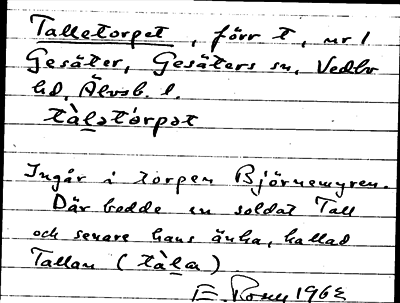 Talletorpet, förr t, nr 1
Gesäter, Gesäters sn, Vedbo
hd, Älvsb. l.
tàlətórpət
Ingår i torpen Björnemyren.
Där bodde en soldat Tall
och senare hans änka, kallad
Tallan (tàla)
1962